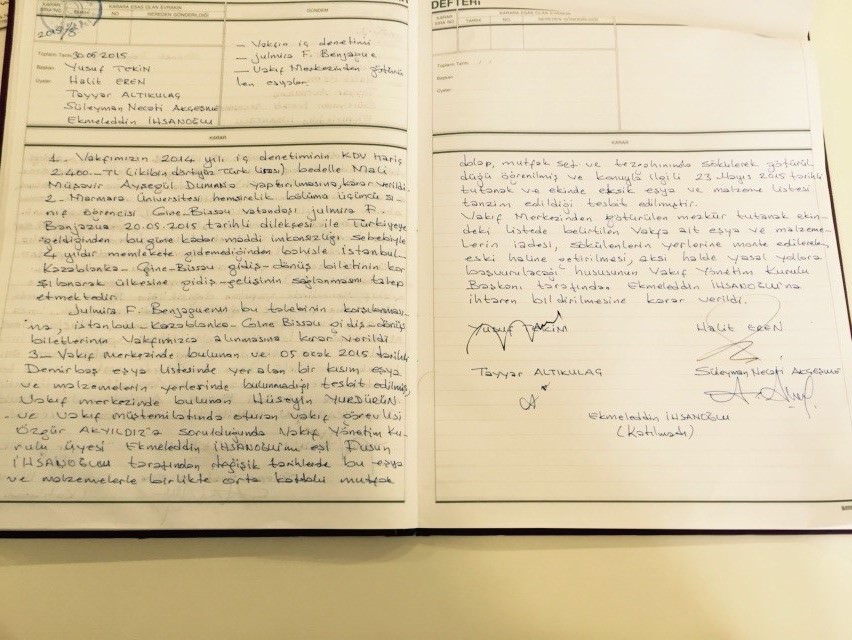 KARAR SIRA NO.
KARARA ESAS OLAN EVRAKIN
TARİHİ
NO
NEREDEN GÖNDERİLDİĞİ
GÜNDEM
2015/8
Toplantı Tarihi 30.05.2015
Başkan Yusuf TEKİN
Üyeler Halit EREN
Tayyar ALTIKULAÇ
Süleyman Necati AKÇEŞME
Ekmeleddin İHSANOĞLU
— Vakfın iç denetimi
— Julmira F. Benjaque
— Vakıf Merkezinden götürü-
len eşyalar
KARAR
1- Vakfımızın 2014 yılı iç denetiminin KDV Hariç
2.400.-TL (ikibin dörtyüz Türk Lirası) bedelle Mali
Müşavir Ayşegül Duman'a yaptırılmasına, karar verildi.
2- Marmara Üniversitesi hemşirelik bölümü üçüncü sı-
nıf öğrencisi Gine-Bissau vatandaşı Julmira F.
Benjaque 20.05.2015 tarihli dilekçesi ile Türkiyeye
geldiğinden bugüne kadar maddi imkansızlığı sebebiyle
4 yıldır memlekete gidemediğinden bahisle İstanbul-
Kazablanka-Gine-Bissau gidiş-dönüş biletinin kar
şılanarak ülkesine gidiş-gelişinin sağlanmasını talep
etmektedir.
Julmira F. Benjaquenin bu talebinin karşılanması-
na, istanbul-Kazablanka-Gine Bissau gidiş-dönüş
biletlerinin Vakfımızca alınmasına karar verildi
3- Vakıf merkezinde bulunan ve 05 ocak 2015 tarihli
Demirbaş eşya listesinde yer alan bir kısım eşya
ve malzemelerin yerlerinde bulunmadığı tesbit edilmiş,
Vakıf merkezinde bulunan Hüseyin YURDÜRÜN
ve vakıf müştemilatında oturan vakıf görevlisi
Özgür AKYILDIZ'a sorulduğunda Vakıf Yönetim Ku-
rulu üyesi Ekmeleddin İHSANOĞLU'nun eşi Füsun
İHSANOĞLU tarafından değişik tarihlerde bu eşya
ve malzemelerle birlikte orta kattaki mutfak
DEFTERİ
KARAR SIRA NO.
KARARA ESAS OLAN EVRAKIN
TARİHİ
NO
NEREDEN GÖNDERİLDİĞİ
Toplantı Tarihi
Başkan
Üyeler
KARAR
dolap, mutfak set ve tezgahınında sökülerek götürül
düğü öğrenilmiş ve konuyla ilgili 23 Mayıs 2015 tarihli
tutanak ve ekinde eksik eşya ve malzeme listesi
tanzim edildiği tesbit edilmiştir.
Vakıf Merkezinden götürülen mezkür tutanak ekin-
deki listede belirtilen Vakfa ait eşya ve malzeme-
lerin iadesi, sökülenlerin yerlerine monte edilerek,
eski haline getirilmesi, aksi halde yasal yollara
başvurulacağı hususunun Vakıf Yönetim Kurulu
Başkanı tarafından Ekmeleddin İHSANOĞLU'na
ihtaren bildirilmesine karar verildi.
Yusuf TEKİN
Halit EREN
Tayyar ALTIKULAÇ
Süleyman Necati AKÇEŞME
Ekmeleddin İHSANOĞLU
(Katılmadı)